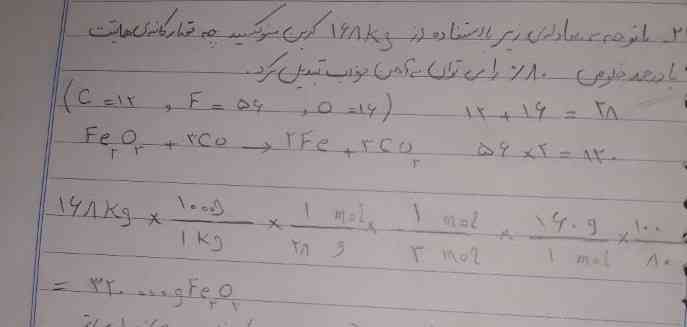 ۲_ با توجه به معادله‌ی زیر با استفاده از ۱۶۸Kg کربن مونوکسید چه مقدار کانه‌ی هماتیت
با درصد خلوص ۸۰٪ را می توان به آهن مذاب تبدیل کرد.
(C = ۱۲ , F = ۵۶ , O = ۱۶) ۱۲ + ۱۶ = ۲۸
Fe₂O₃ + ۳CO → ۲Fe + ۳CO₂ ۵۶ × ۲ = ۱۲۰
۱۶۸Kg × ۱۰۰۰g / ۱Kg × ۱ mol / ۲۸ g × ۱ mol / ۳ mol × ۱۶۰ g / ۱ mol × ۱۰۰ / ۸۰
= ۳۲۰۰۰۰۰gFe₂O₃